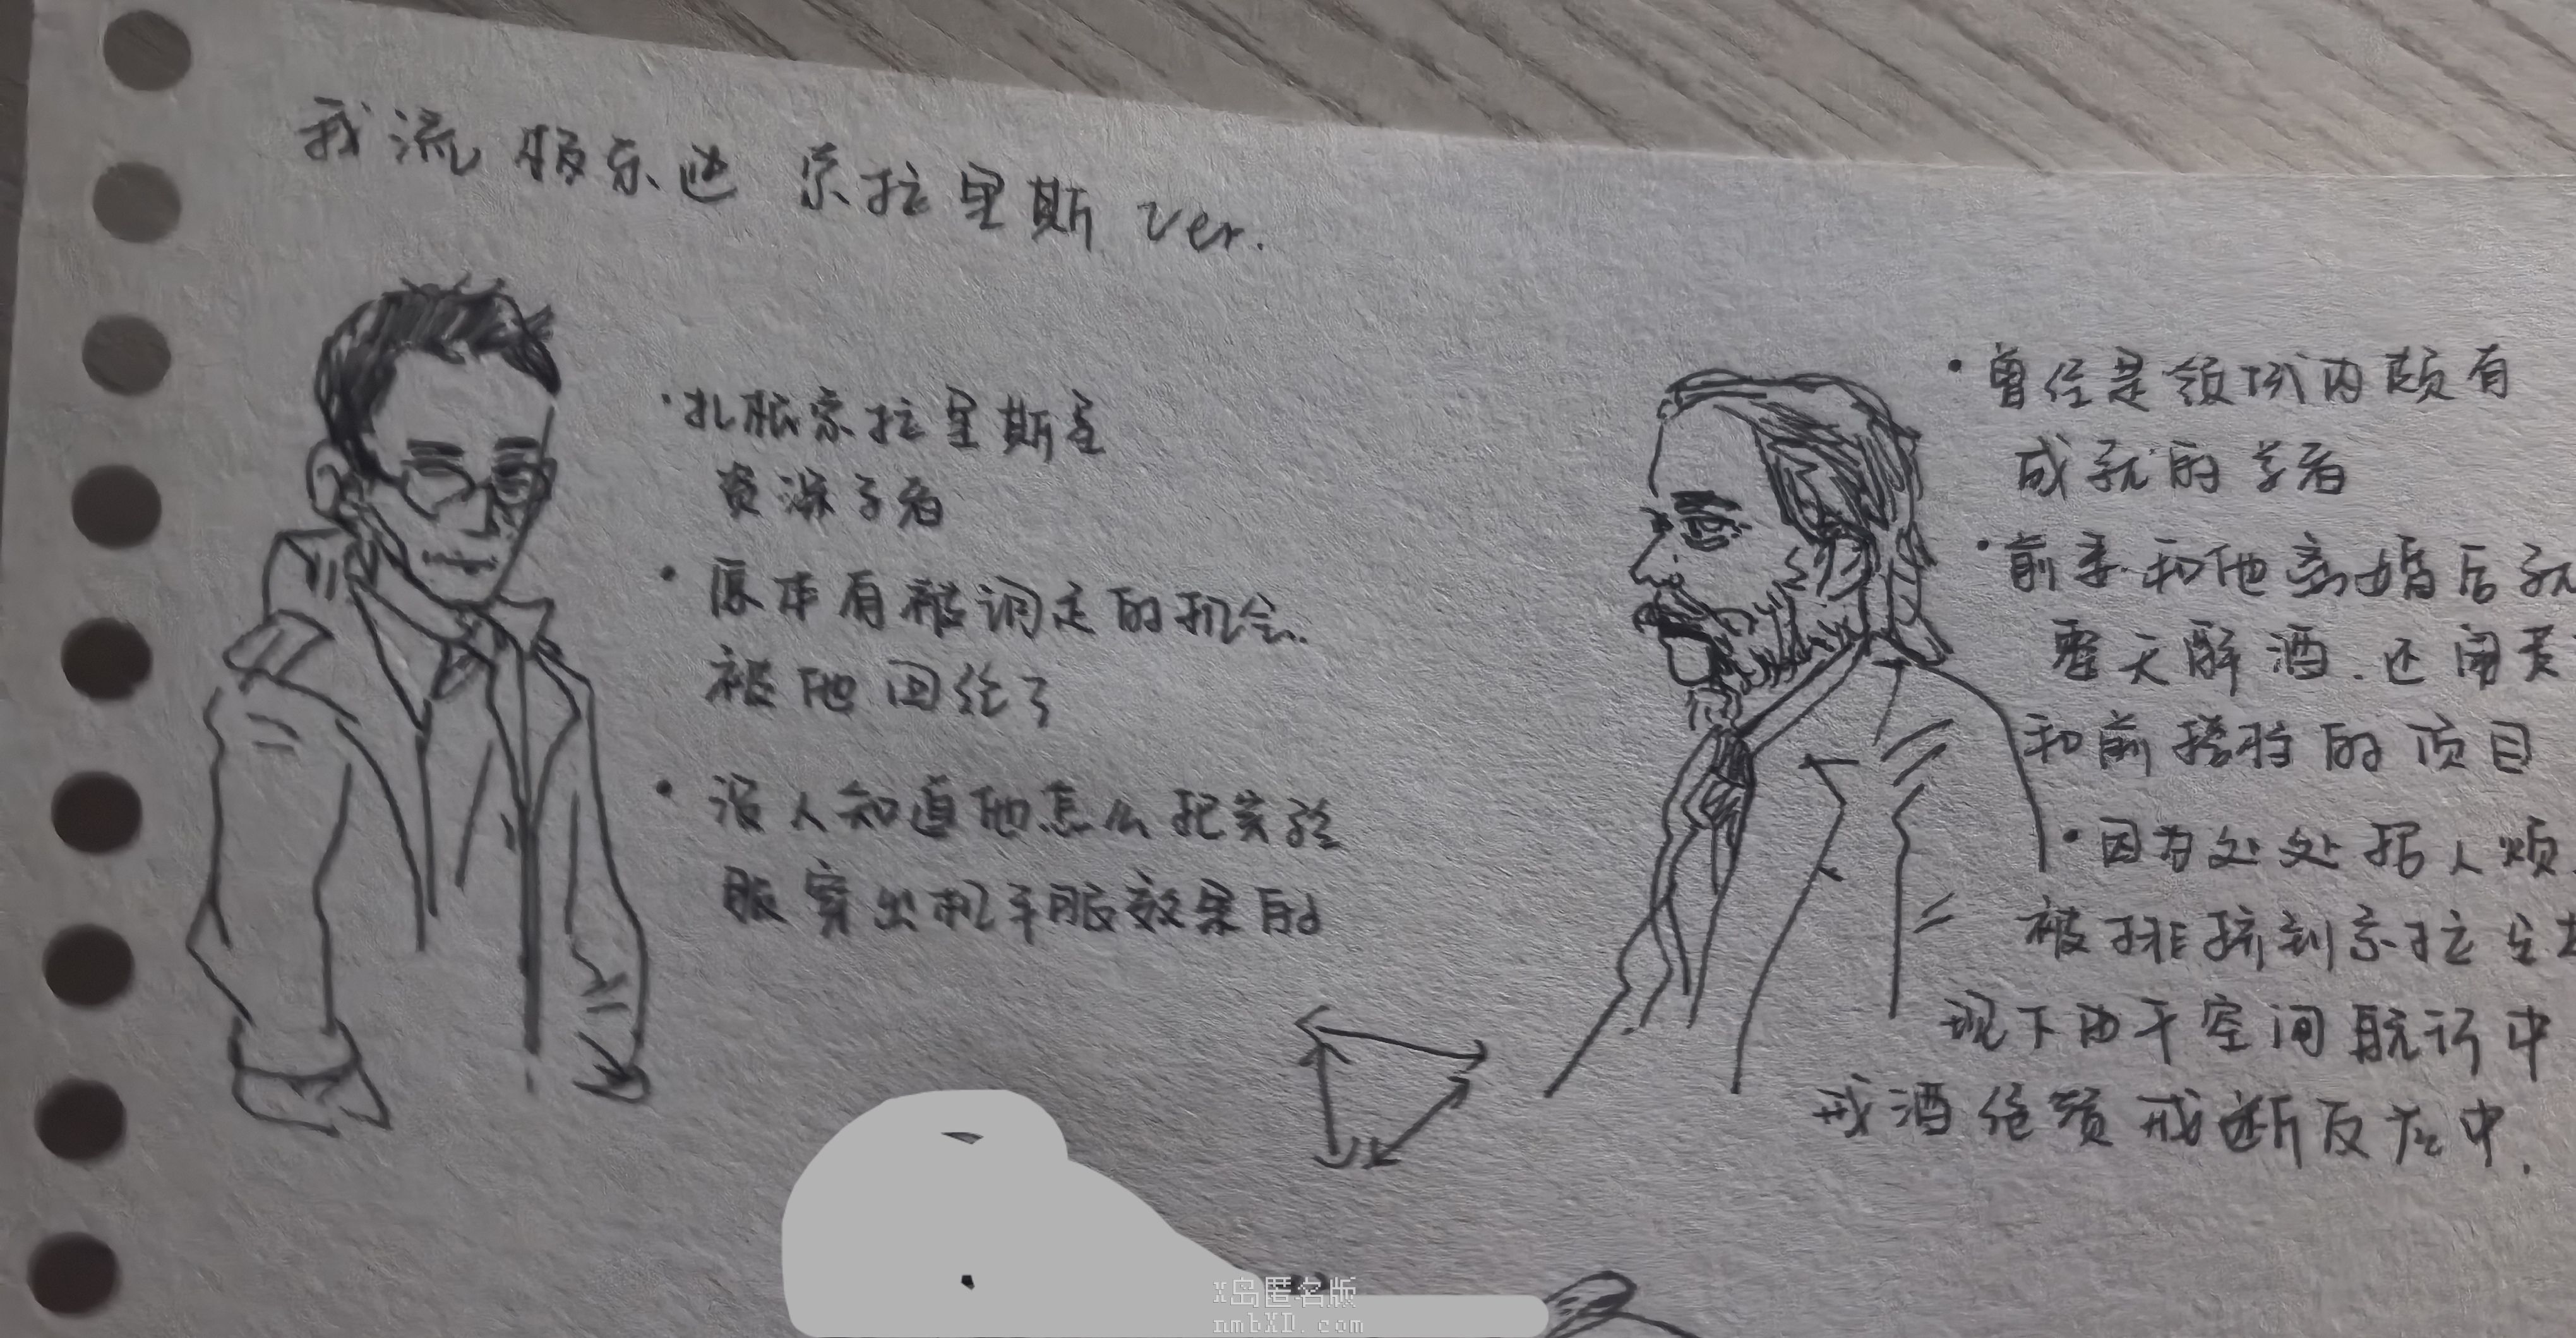 我流 极乐迪 索拉里斯 ver.
·扎根索拉里斯星
资深学者
·原本有被调走的机会.
被他回绝了
·没人知道他怎么把实验
服穿出机车服效果的
·曾经是领域内颇有
成就的学者
·前妻和他离婚后就
整天酗酒.还闹黄
和前搭档的项目
·因为处处招人烦.
被排挤到索拉里
现下由于空间航行中
戒酒绝赞戒断反应中.
X岛匿名版
nmbXD.com